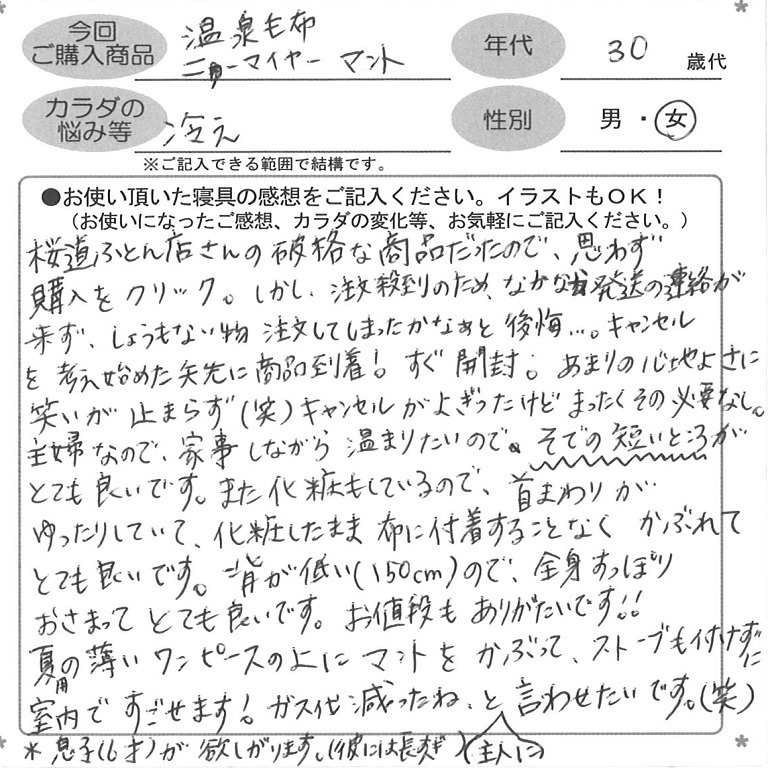 今回
ご購入商品
温泉毛布
ニューマイヤー マント
年代
30
歳代
カラダの
悩み等
冷え
性別
男・女
※ご記入できる範囲で結構です。
●お使い頂いた寝具の感想をご記入ください。イラストもOK!
(お使いになったご感想、カラダの変化等、お気軽にご記入ください。)
桜道ふとん店さんの破格な商品だったので、思わず
購入をクリック。しかし、注文殺到のため、なかなか発送の連絡が
来ず、しょうもない物 注文してしまったかなぁと後悔…。キャンセル
を考え始めた矢先に商品到着! すぐ開封。あまりの心地よさに
笑いが止まらず(笑)キャンセルがよぎったけどまったくその必要なし。
主婦なので、家事しながら温まりたいので、そでの短いところが
とても良いです。また化粧もしているので、首まわりが
ゆったりしていて、化粧したまま布に付着することなくかぶれて
とても良いです。背が低い(150cm)ので、全身すっぽり
おさまってとても良いです。お値段もありがたいです!!
夏用の薄いワンピースの上にマントをかぶって、ストーブも付けずに
室内ですごせます! ガス代減ったね、と言わせたいです。(笑)
主人に
*息子(6才)が欲しがります。(彼には長すぎ)